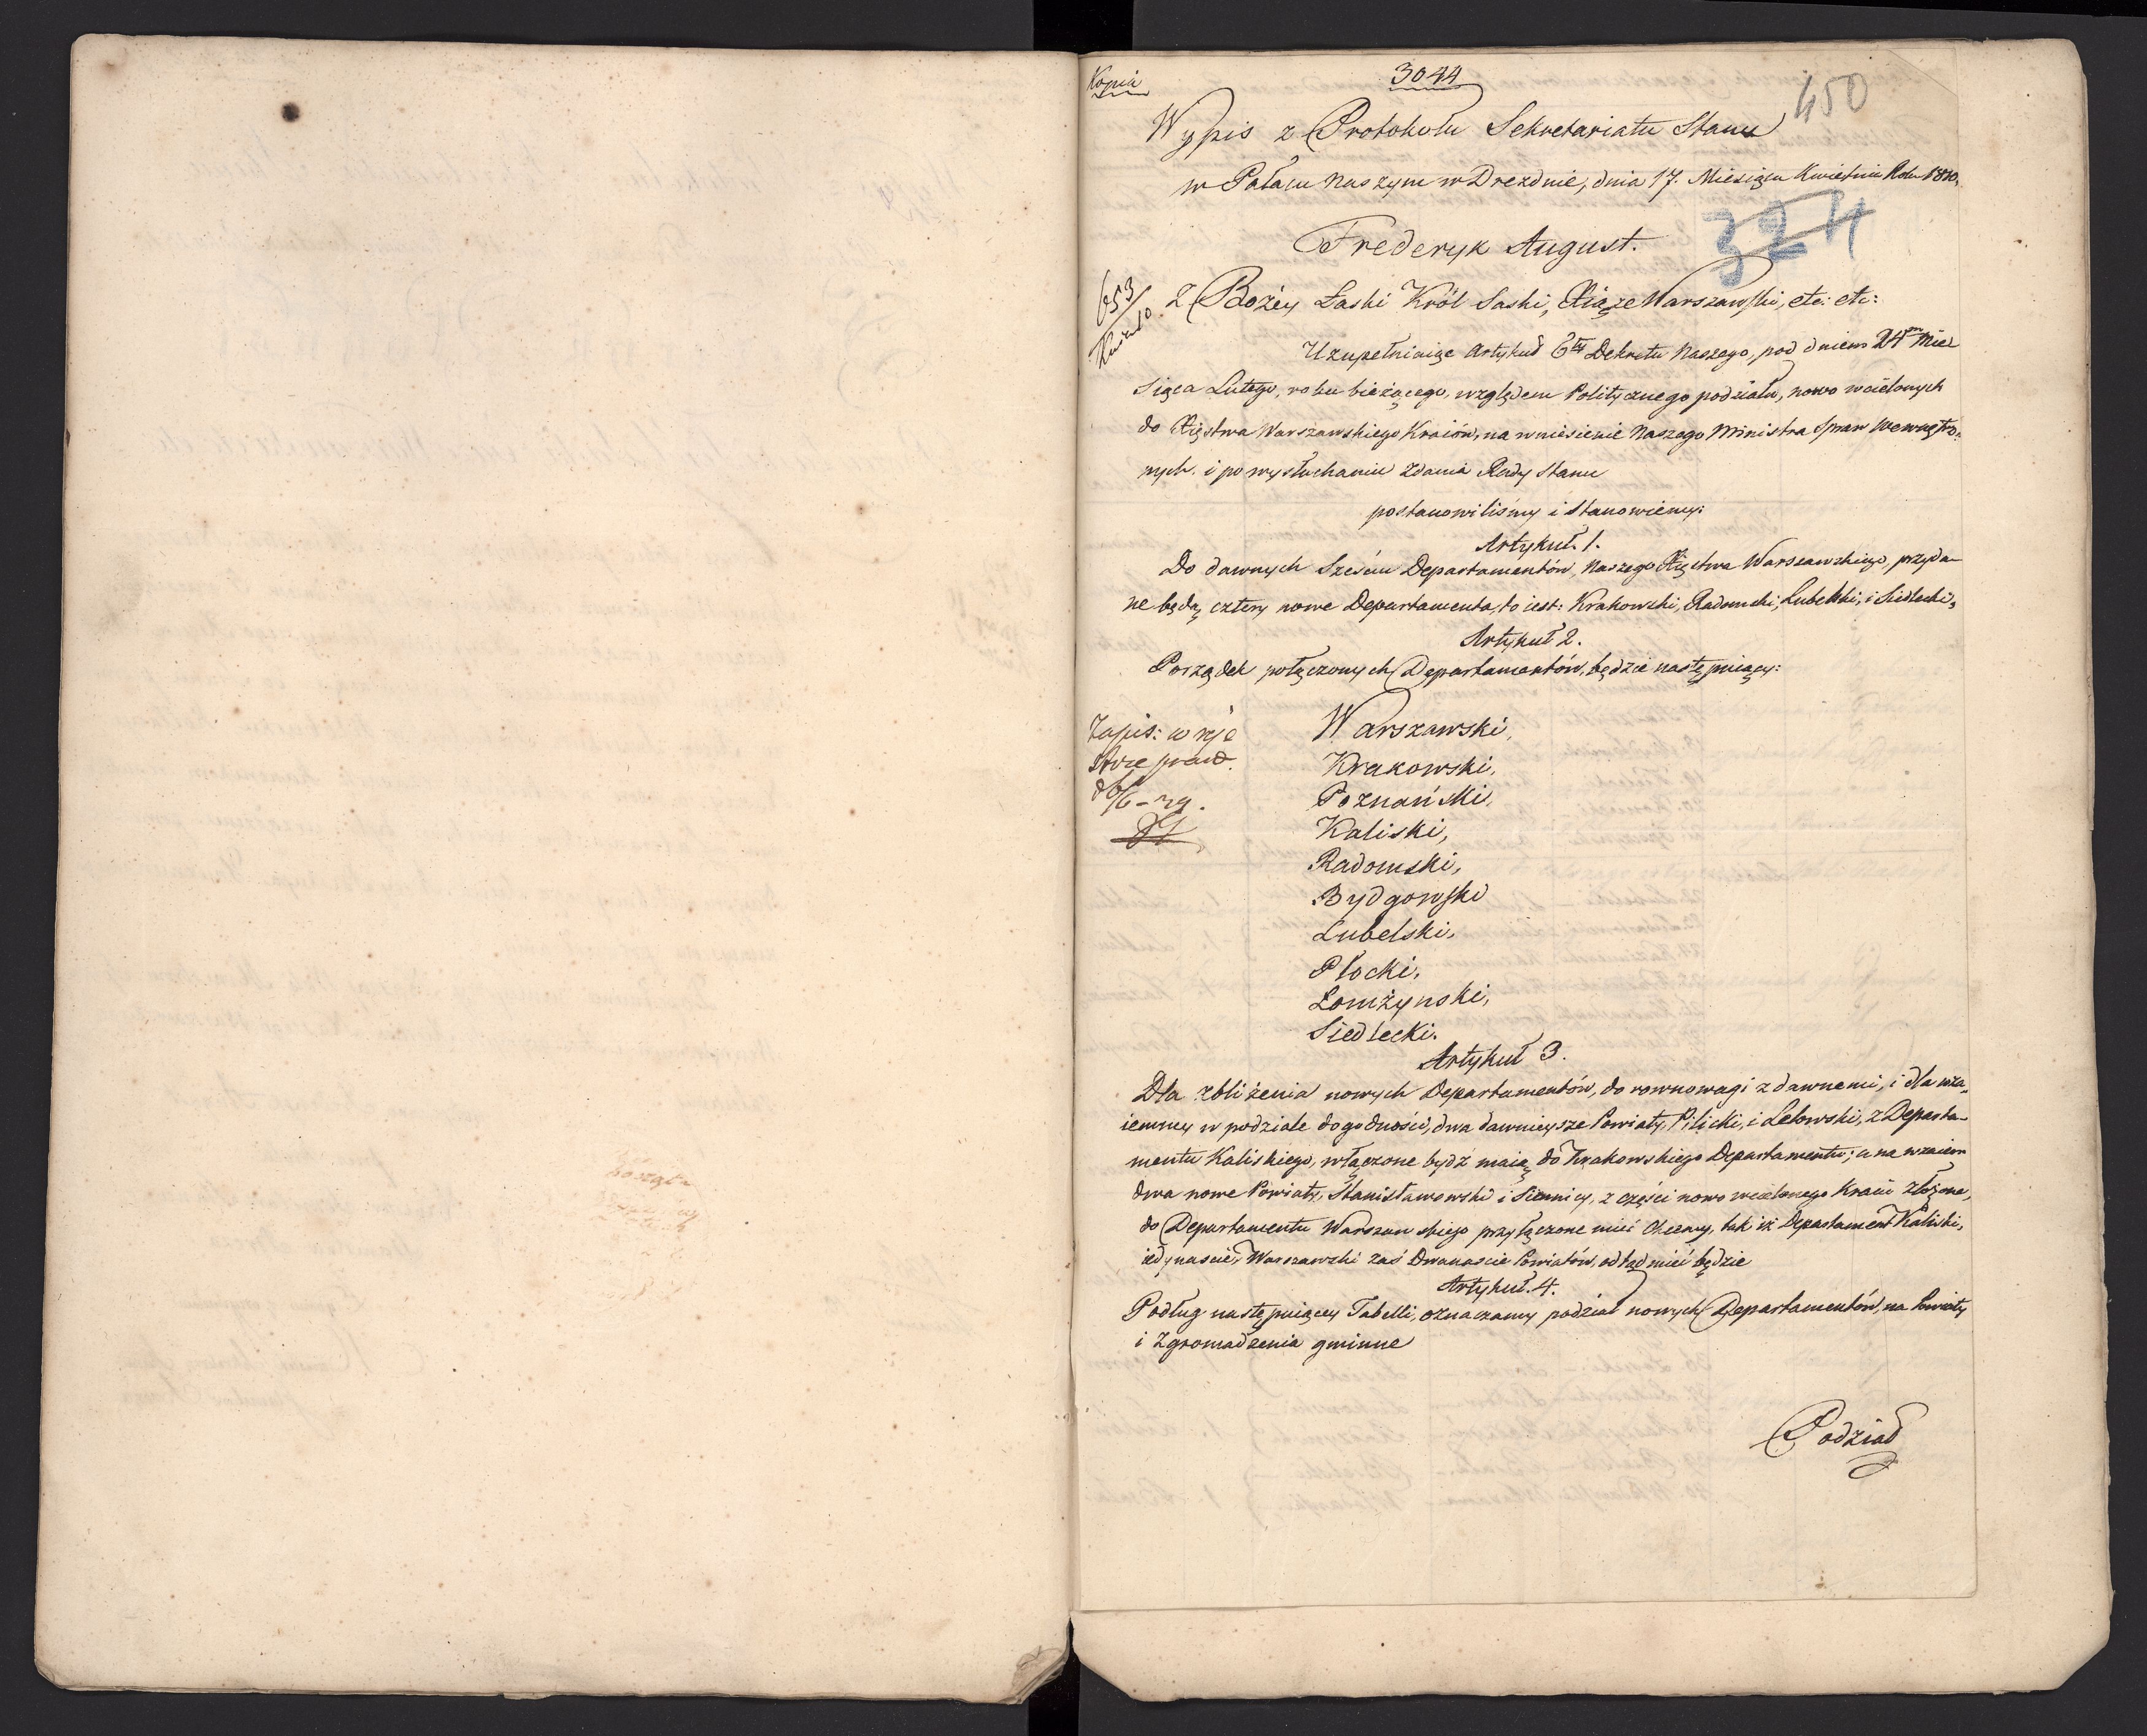 Kopia
3044
450
Wypis z Protokołu Sekretariatu Stanu
w Pałacu Naszym w Dreznie, dnia 17. Miesiąca Kwietnia Roku 1810.
324
Frederyk August.
653
Z Bożéy Łaski Król Saski, Xiąże Warszawski, etc: etc:
Uzupełniaiąc Artykuł 6ty Dekretu Naszego, pod dniem 24m Mie-
siąca Lutego, roku bieżącego, względem Politycznego podziału, nowo wcielonych
do Xięstwa Warszawskiego Kraiów, na wniesienie Naszego Ministra Spraw Wewnętrz-
nych, i po wysłuchaniu zdania Rady Stanu
postanowiliśmy i Stanowiemy:
Artykuł 1.
Do dawnych Sześciu Departamentów, Naszego Xięstwa Warszawskiego, przyda-
ne będą cztery nowe Departamenta, to iest: Krakowski, Radomski, Lubelski, i Siedlecki,
Artykuł 2.
Porządek połączonych Departamentów, będzie następuiący:
Zapis: w rje
strze prawd.
d 6/6 - 29.
Warszawski,
Krakowski,
Poznański,
Kaliski,
Radomski,
Bydgowski
Lubelski,
Płocki,
Łomżynski,
Siedlecki.
Artykuł 3.
Dla zbliżenia nowych Departamentów, do rownowagi z dawnemi, i dla wza-
iemney w podziale dogodności, dwa dawnieysze Powiaty, Pilicki, i Lelowski, z Departa-
mentu Kaliskiego, włączone bydź maią do Krakowskiego Departamentu; a na wzaiem
dwa nowe Powiaty, Stanisławowski i Siennicy, z części nowo wcielonego Kraiu złożone,
do Departamentu Warszawskiego przyłączone mieć chcemy, tak iż Departament Kaliski,
iedynaście, Warszawski zaś Dwanaście Powiatów, odtąd mieć będzie
Artykuł. 4.
Podług następuiącey Tabelli, oznaczamy podział nowych Departamentów, na Powiaty
i Zgromadzenia gminne
Podział